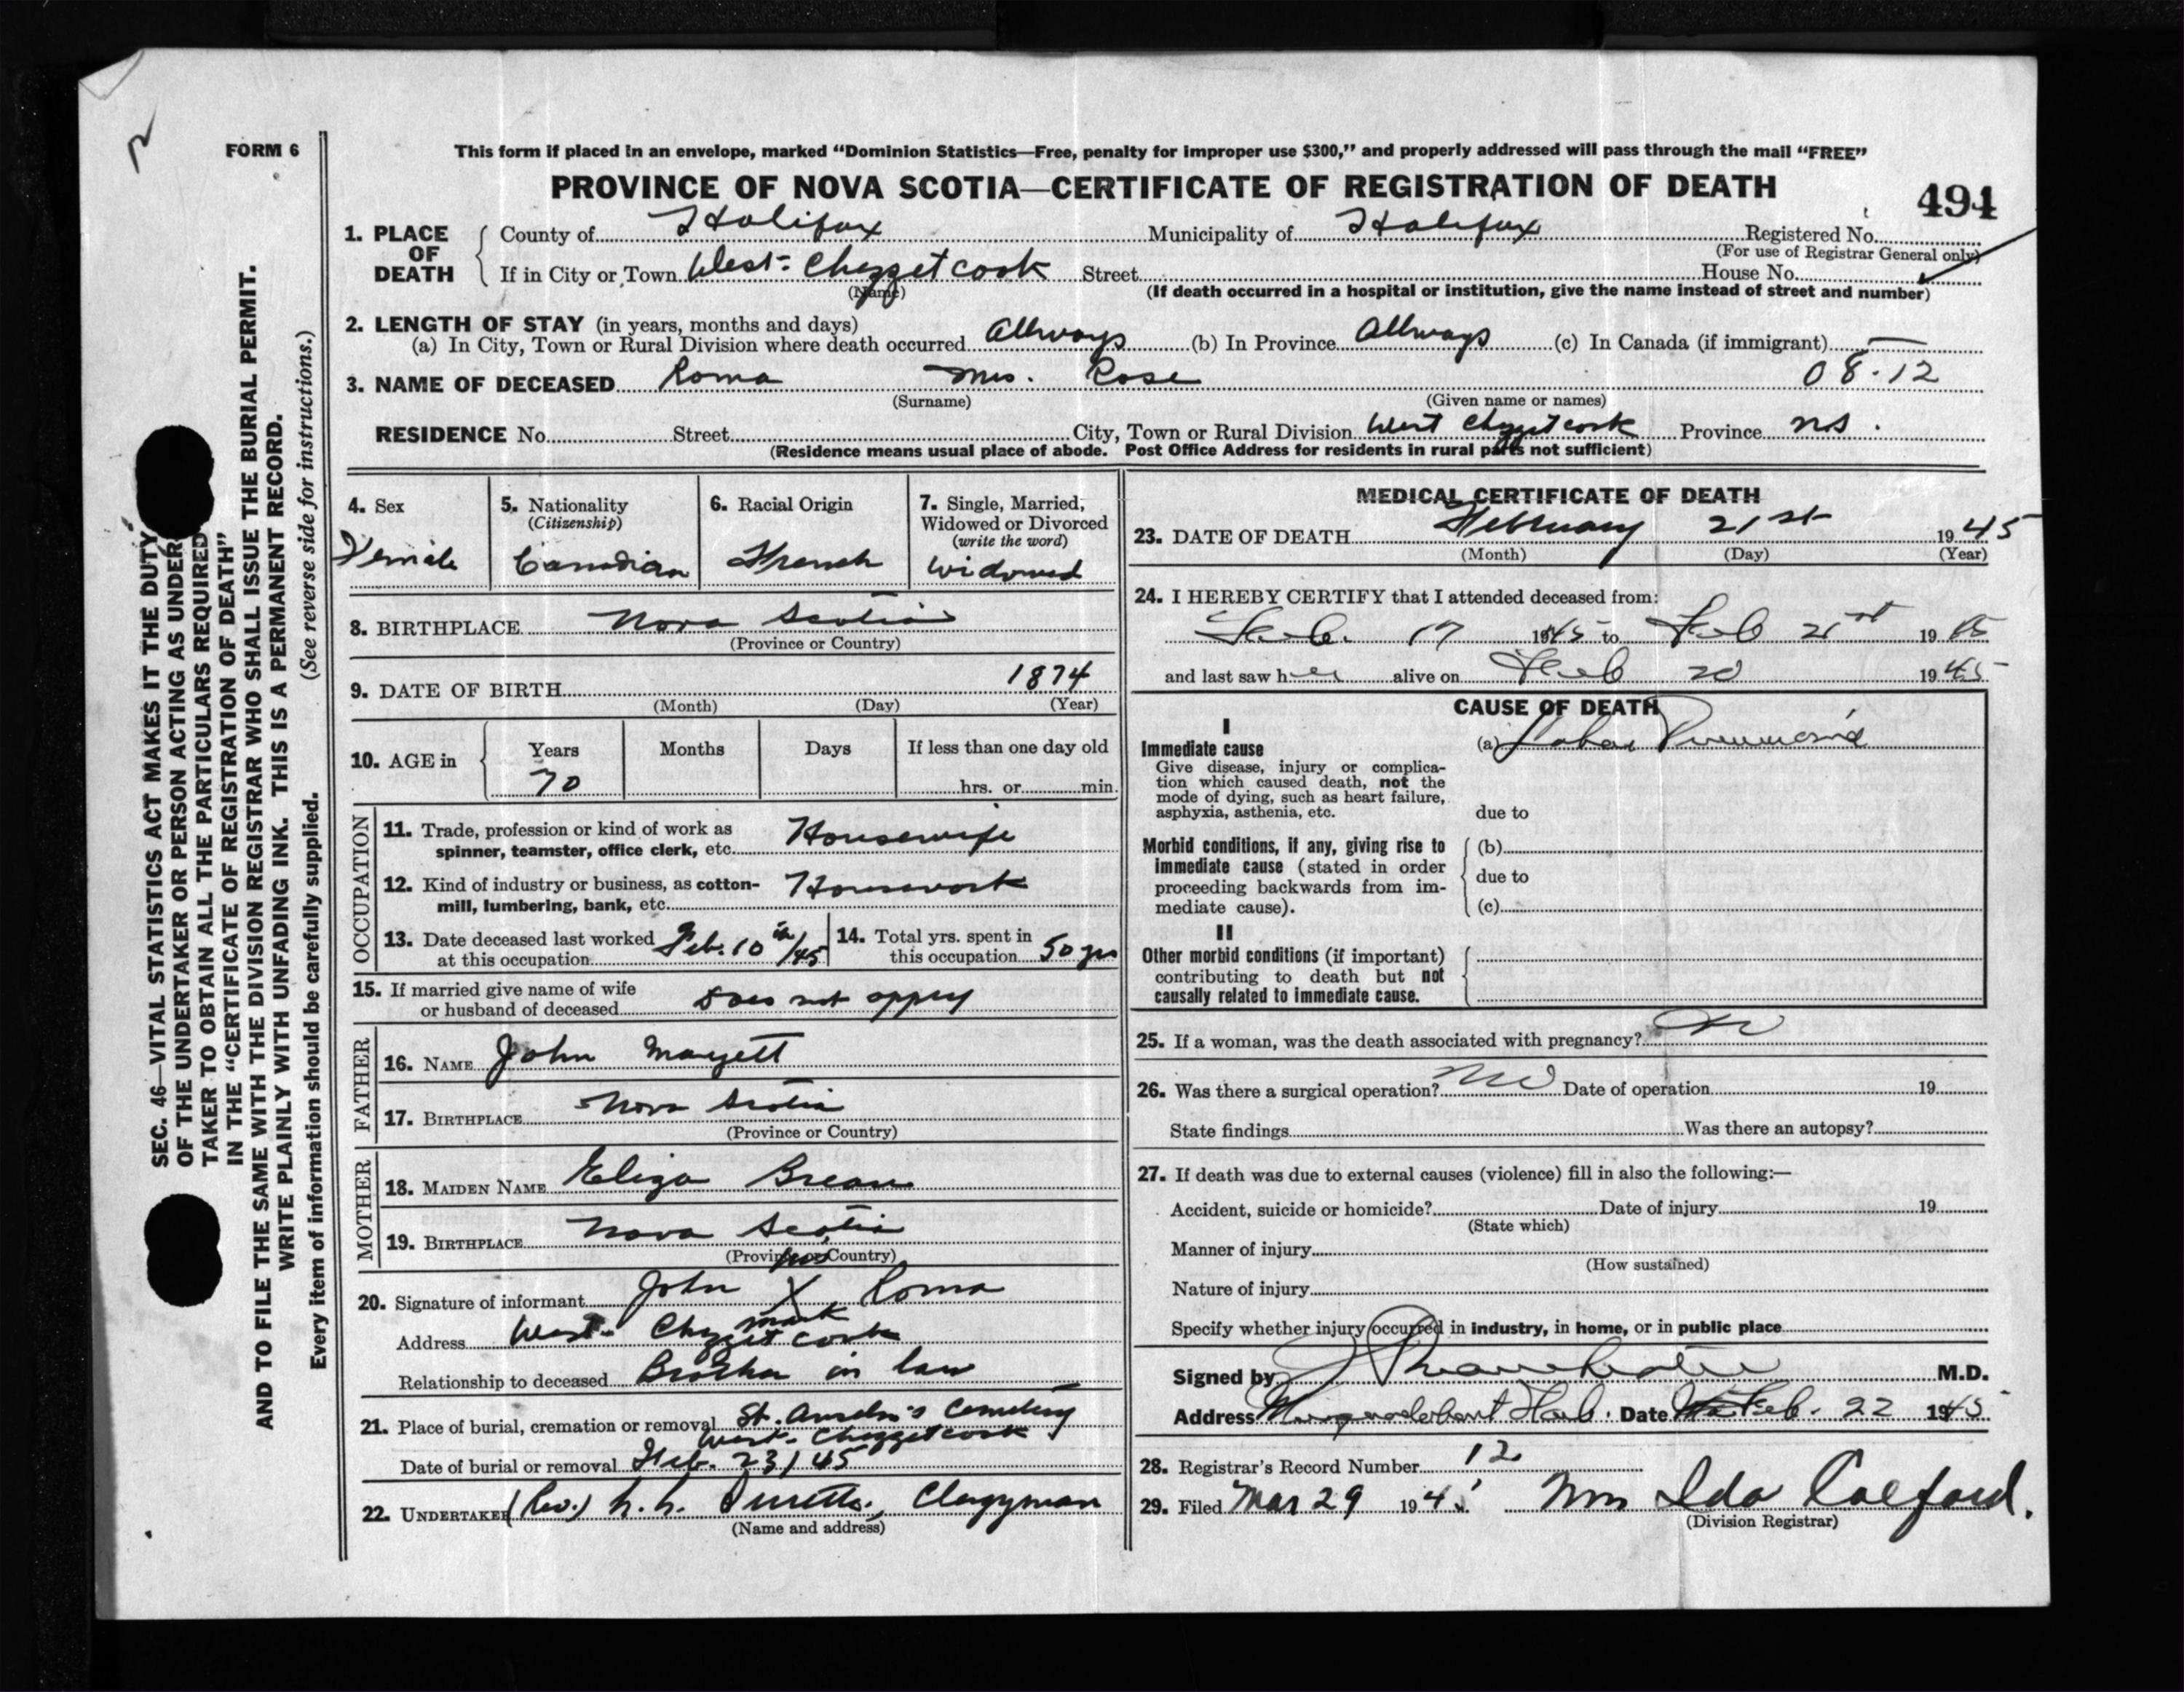 FORM 6
This form if placed in an envelope, marked “Dominion Statistics—Free, penalty for improper use $300,” and properly addressed will pass through the mail “FREE”
PROVINCE OF NOVA SCOTIA—CERTIFICATE OF REGISTRATION OF DEATH
494
1. PLACE OF DEATH
County of Halifax Municipality of Halifax Registered No.
(For use of Registrar General only)
If in City or Town West-Chezzetcook Street House No.
(Name) (If death occurred in a hospital or institution, give the name instead of street and number)
2. LENGTH OF STAY (in years, months and days)
(a) In City, Town or Rural Division where death occurred Allways (b) In Province Allways (c) In Canada (if immigrant) —
3. NAME OF DECEASED Roma Mrs. Rose 08-12
(Surname) (Given name or names)
RESIDENCE No. Street City, Town or Rural Division West Chezzetcook Province N.S.
(Residence means usual place of abode. Post Office Address for residents in rural parts not sufficient)
4. Sex
Female
5. Nationality
(Citizenship)
Canadian
6. Racial Origin
French
7. Single, Married,
Widowed or Divorced
(write the word)
Widowed
8. BIRTHPLACE Nova Scotia
(Province or Country)
9. DATE OF BIRTH 1874
(Month) (Day) (Year)
10. AGE in
Years Months Days If less than one day old
70 hrs. or min.
OCCUPATION
11. Trade, profession or kind of work as
spinner, teamster, office clerk, etc. Housewife
12. Kind of industry or business, as cotton-
mill, lumbering, bank, etc. Housework
13. Date deceased last worked
at this occupation Feb. 10 /45
14. Total yrs. spent in
this occupation 50 yrs
15. If married give name of wife
or husband of deceased Does not apply
FATHER
16. NAME John
17. BIRTHPLACE Nova Scotia
(Province or Country)
MOTHER
18. MAIDEN NAME Eliza
19. BIRTHPLACE Nova Scotia
(Province or Country)
his
20. Signature of informant John X Roma
mark
Address West-Chezzetcook
Relationship to deceased Brother in law
21. Place of burial, cremation or removal St. Anselm's Cemetery
West-Chezzetcook
Date of burial or removal Feb. 23/45
22. UNDERTAKER (Rev.) Clergyman
(Name and address)
MEDICAL CERTIFICATE OF DEATH
23. DATE OF DEATH February 21st 1945
(Month) (Day) (Year)
24. I HEREBY CERTIFY that I attended deceased from:
Feb. 17 1945 to Feb 21st 1945
and last saw her alive on Feb 20 1945
CAUSE OF DEATH
I
Immediate cause
Give disease, injury or complica-
tion which caused death, not the
mode of dying, such as heart failure,
asphyxia, asthenia, etc.
(a) Lobar Pneumonia
due to
Morbid conditions, if any, giving rise to
immediate cause (stated in order
proceeding backwards from im-
mediate cause).
(b)
due to
(c)
II
Other morbid conditions (if important)
contributing to death but not
causally related to immediate cause.
25. If a woman, was the death associated with pregnancy? No
26. Was there a surgical operation? No Date of operation 19
State findings Was there an autopsy?
27. If death was due to external causes (violence) fill in also the following:—
Accident, suicide or homicide? Date of injury 19
(State which)
Manner of injury
(How sustained)
Nature of injury
Specify whether injury occurred in industry, in home, or in public place
Signed by M.D.
Address Musquodoboit Harb. Date Feb. 22 1945
28. Registrar's Record Number 12
29. Filed Mar 29 1945 Mrs Ida
(Division Registrar)
SEC. 46—VITAL STATISTICS ACT MAKES IT THE DUTY
OF THE UNDERTAKER OR PERSON ACTING AS UNDER-
TAKER TO OBTAIN ALL THE PARTICULARS REQUIRED
IN THE “CERTIFICATE OF REGISTRATION OF DEATH”
AND TO FILE THE SAME WITH THE DIVISION REGISTRAR WHO SHALL ISSUE THE BURIAL PERMIT.
WRITE PLAINLY WITH UNFADING INK. THIS IS A PERMANENT RECORD.
Every item of information should be carefully supplied. (See reverse side for instructions.)